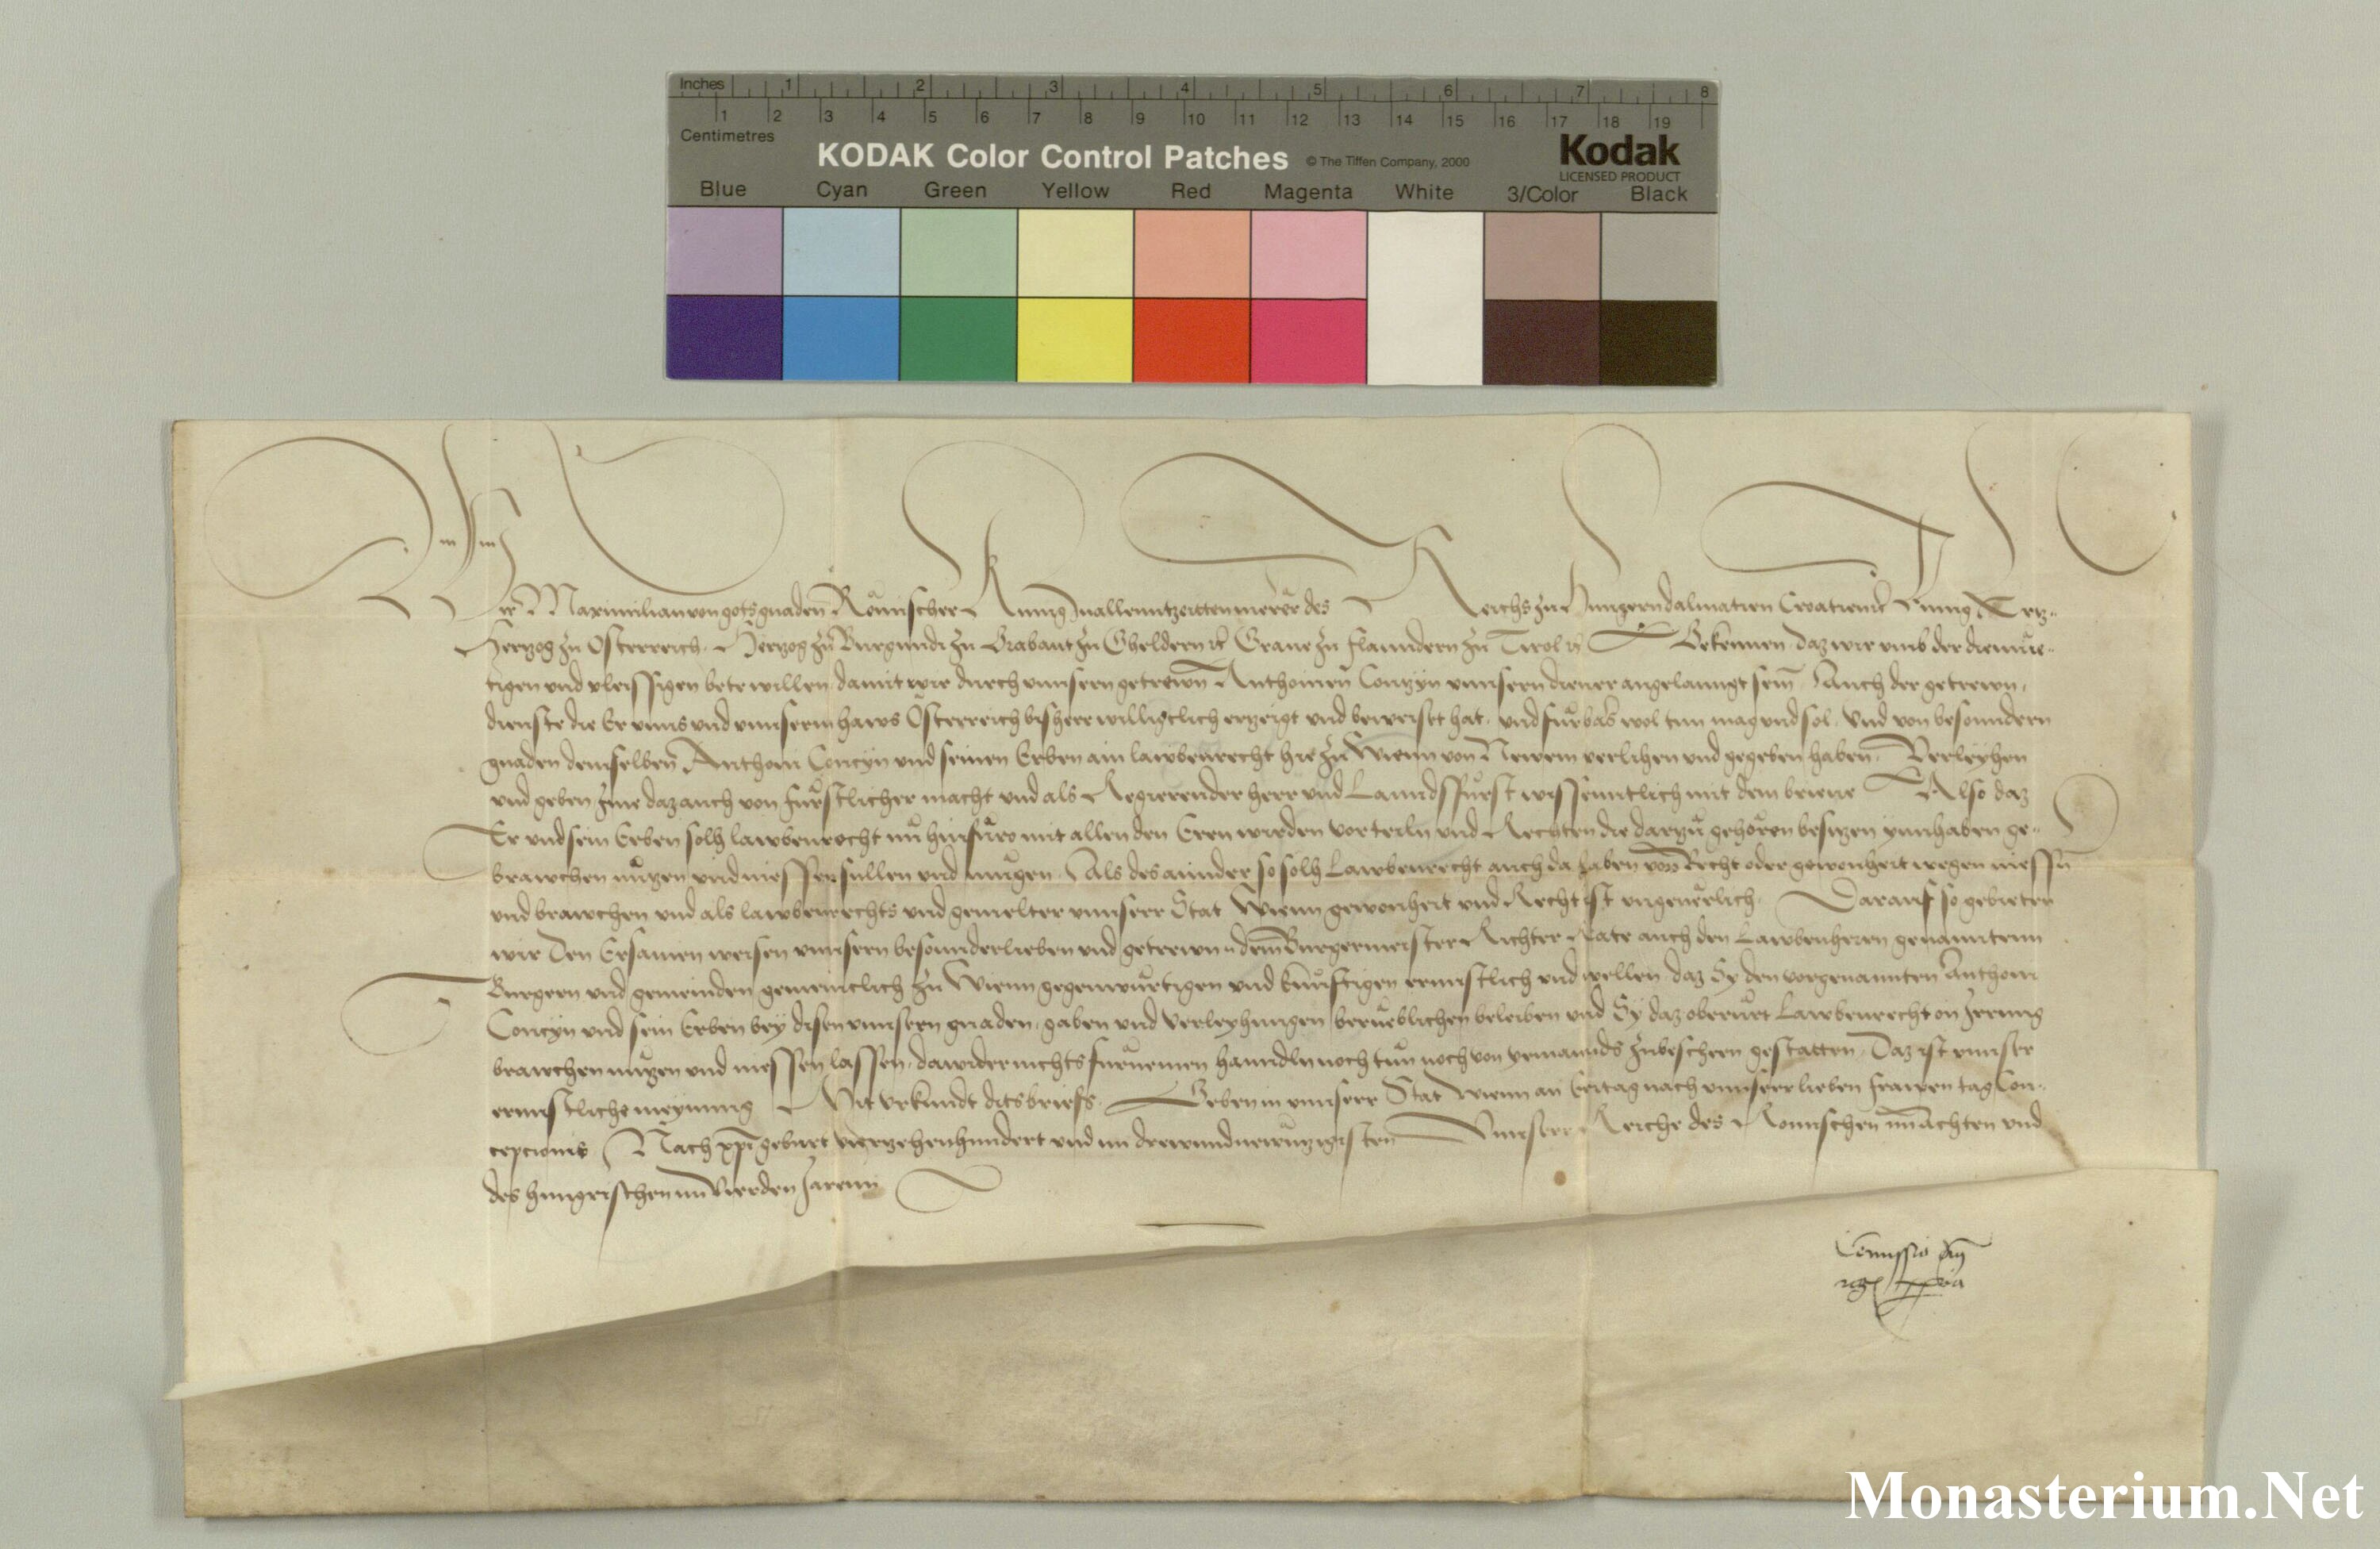 Inches 1 2 3 4 5 6 7 8
1 2 3 4 5 6 7 8 9 10 11 12 13 14 15 16 17 18 19
Centimetres
KODAK Color Control Patches © The Tiffen Company, 2000 Kodak
LICENSED PRODUCT
Blue Cyan Green Yellow Red Magenta White 3/Color Black
Wir Maximilian von gots gnaden Römischer Kunig zuallenntzeitten merer des Reichs zu Hungern dalmatien Croatien etc Kunig Ertz-
Hertzog zu Osterreich Hertzog zu Burgundi zu Brabant zu Gheldern etc Graue zu Flanndern zu Tirol etc Bekennen daz wir vmb der diemüe-
tigen vnd vleissigen bete willen damit wir durch vnnsern getrewn Anthonien Contzyn vnnsern diener angelanngt sein Auch der getrewn
dienste die Er vnns vnd vnnserm haws Österreich bisherr williclich ertzeigt vnd beweiset hat vnd fürbas wol tun mag vnd sol Vnd von besonndern
gnaden demselben Anthoni Concyn vnd seinen Erben ain lawbenrecht hie zu Wienn von Newem verlihen vnd gegeben haben Verleyhen
vnd geben Ime daz auch von fürstlicher macht vnd als Regierender herr vnd Lanndsfürst wissenntlich mit dem brieue Also daz
Er vnd sein Erben solh lawbenrecht nu hinfüro mit allen den Eern wirden vorteiln vnd Rechten die dartzu gehören besitzen ynnhaben ge-
brawchen nützen vnd niessen sullen vnd mügen Als des annder so solh Lawbenrecht auch da haben von Recht oder gewonheit wegen niessn
vnd brawchen vnd als lawbenrechts vnd gemelter vnnserr Stat Wienn gewonheit vnd Recht ist vngeuerlich Darauf so gebieten
wir Den Ersamen weisen vnnsern besonnderlieben vnd getrewn dem Burgermeister Richter Rate auch den Lawbenherren genannten
Burgern vnd gemeinden gemeinclich zu Wienn gegenwürtigen vnd künftigen ernnstlich vnd wellen daz Sy den vorgenannten Anthoni
Concyn vnd sein Erben bey disen vnnsern gnaden gaben vnd verleyhungen berueblichen beleiben vnd Sy daz oberürt Lawbenrecht on Irrung
brawchen nützen vnd niessen lassen dawider nichts fürnemen hanndln noch tun noch von yemannds zubescheen gestatten Daz ist vnnser
ernnstliche meynung Mit vrkundt ditsbriefs Geben in vnnserr Stat Wienn an Eritag nach vnnserrlieben frawen tag Con-
cepcionis Nach xpi geburt viertzehenhundert vnd im drewundnewntzigisten Vnnserr Reiche des Romischen im Achten vnd
des hungrischen im Vierden Jarenn
Comissio dni
regis ppria
Monasterium.Net